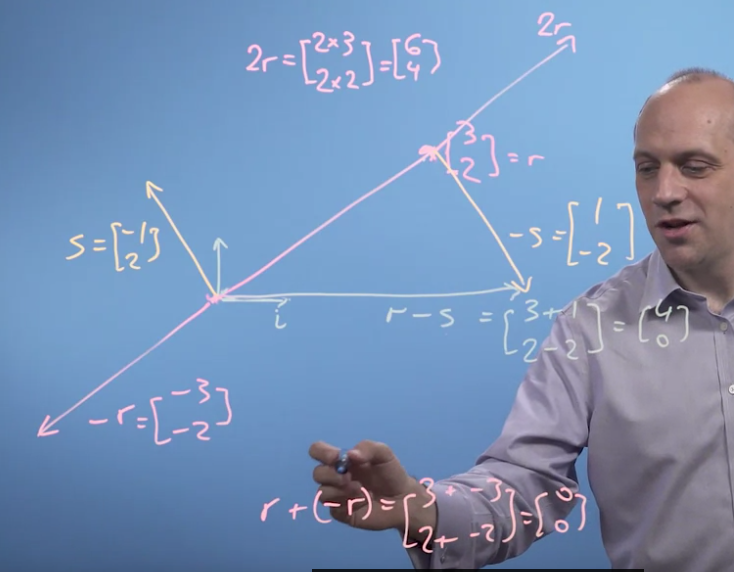 2r
2r = [2×3 2×2] = [6 4]
[3 2] = r
s = [-1 2]
-s = [1 -2]
i
r-s = [3+1 2-2] = [4 0]
-r = [-3 -2]
r+(-r) = [3+-3 2+-2] = [0 0]